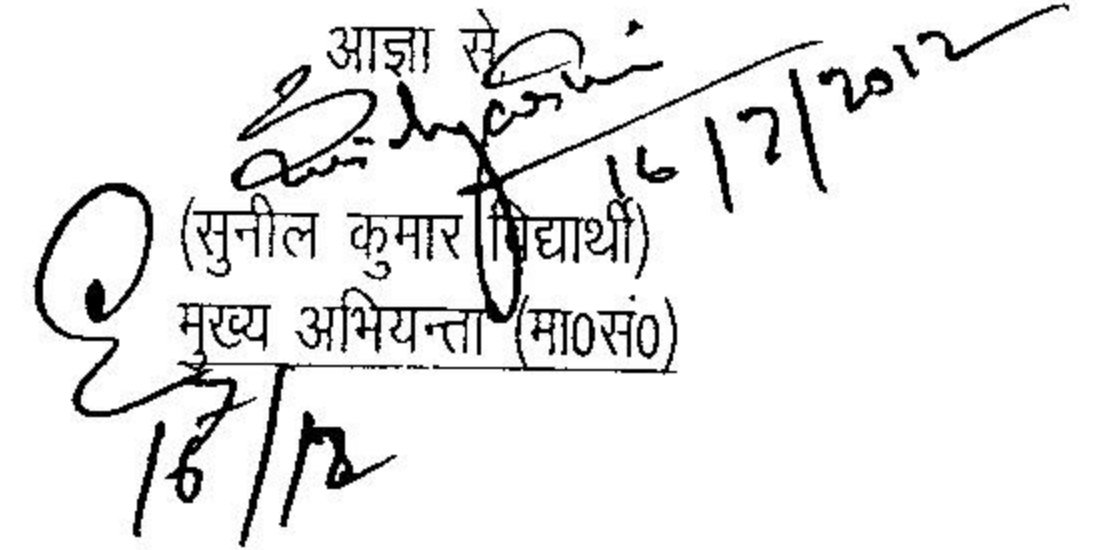 आज्ञा से
16/7/2012
(सुनील कुमार विद्यार्थी)
मुख्य अभियन्ता (मा0सं0)